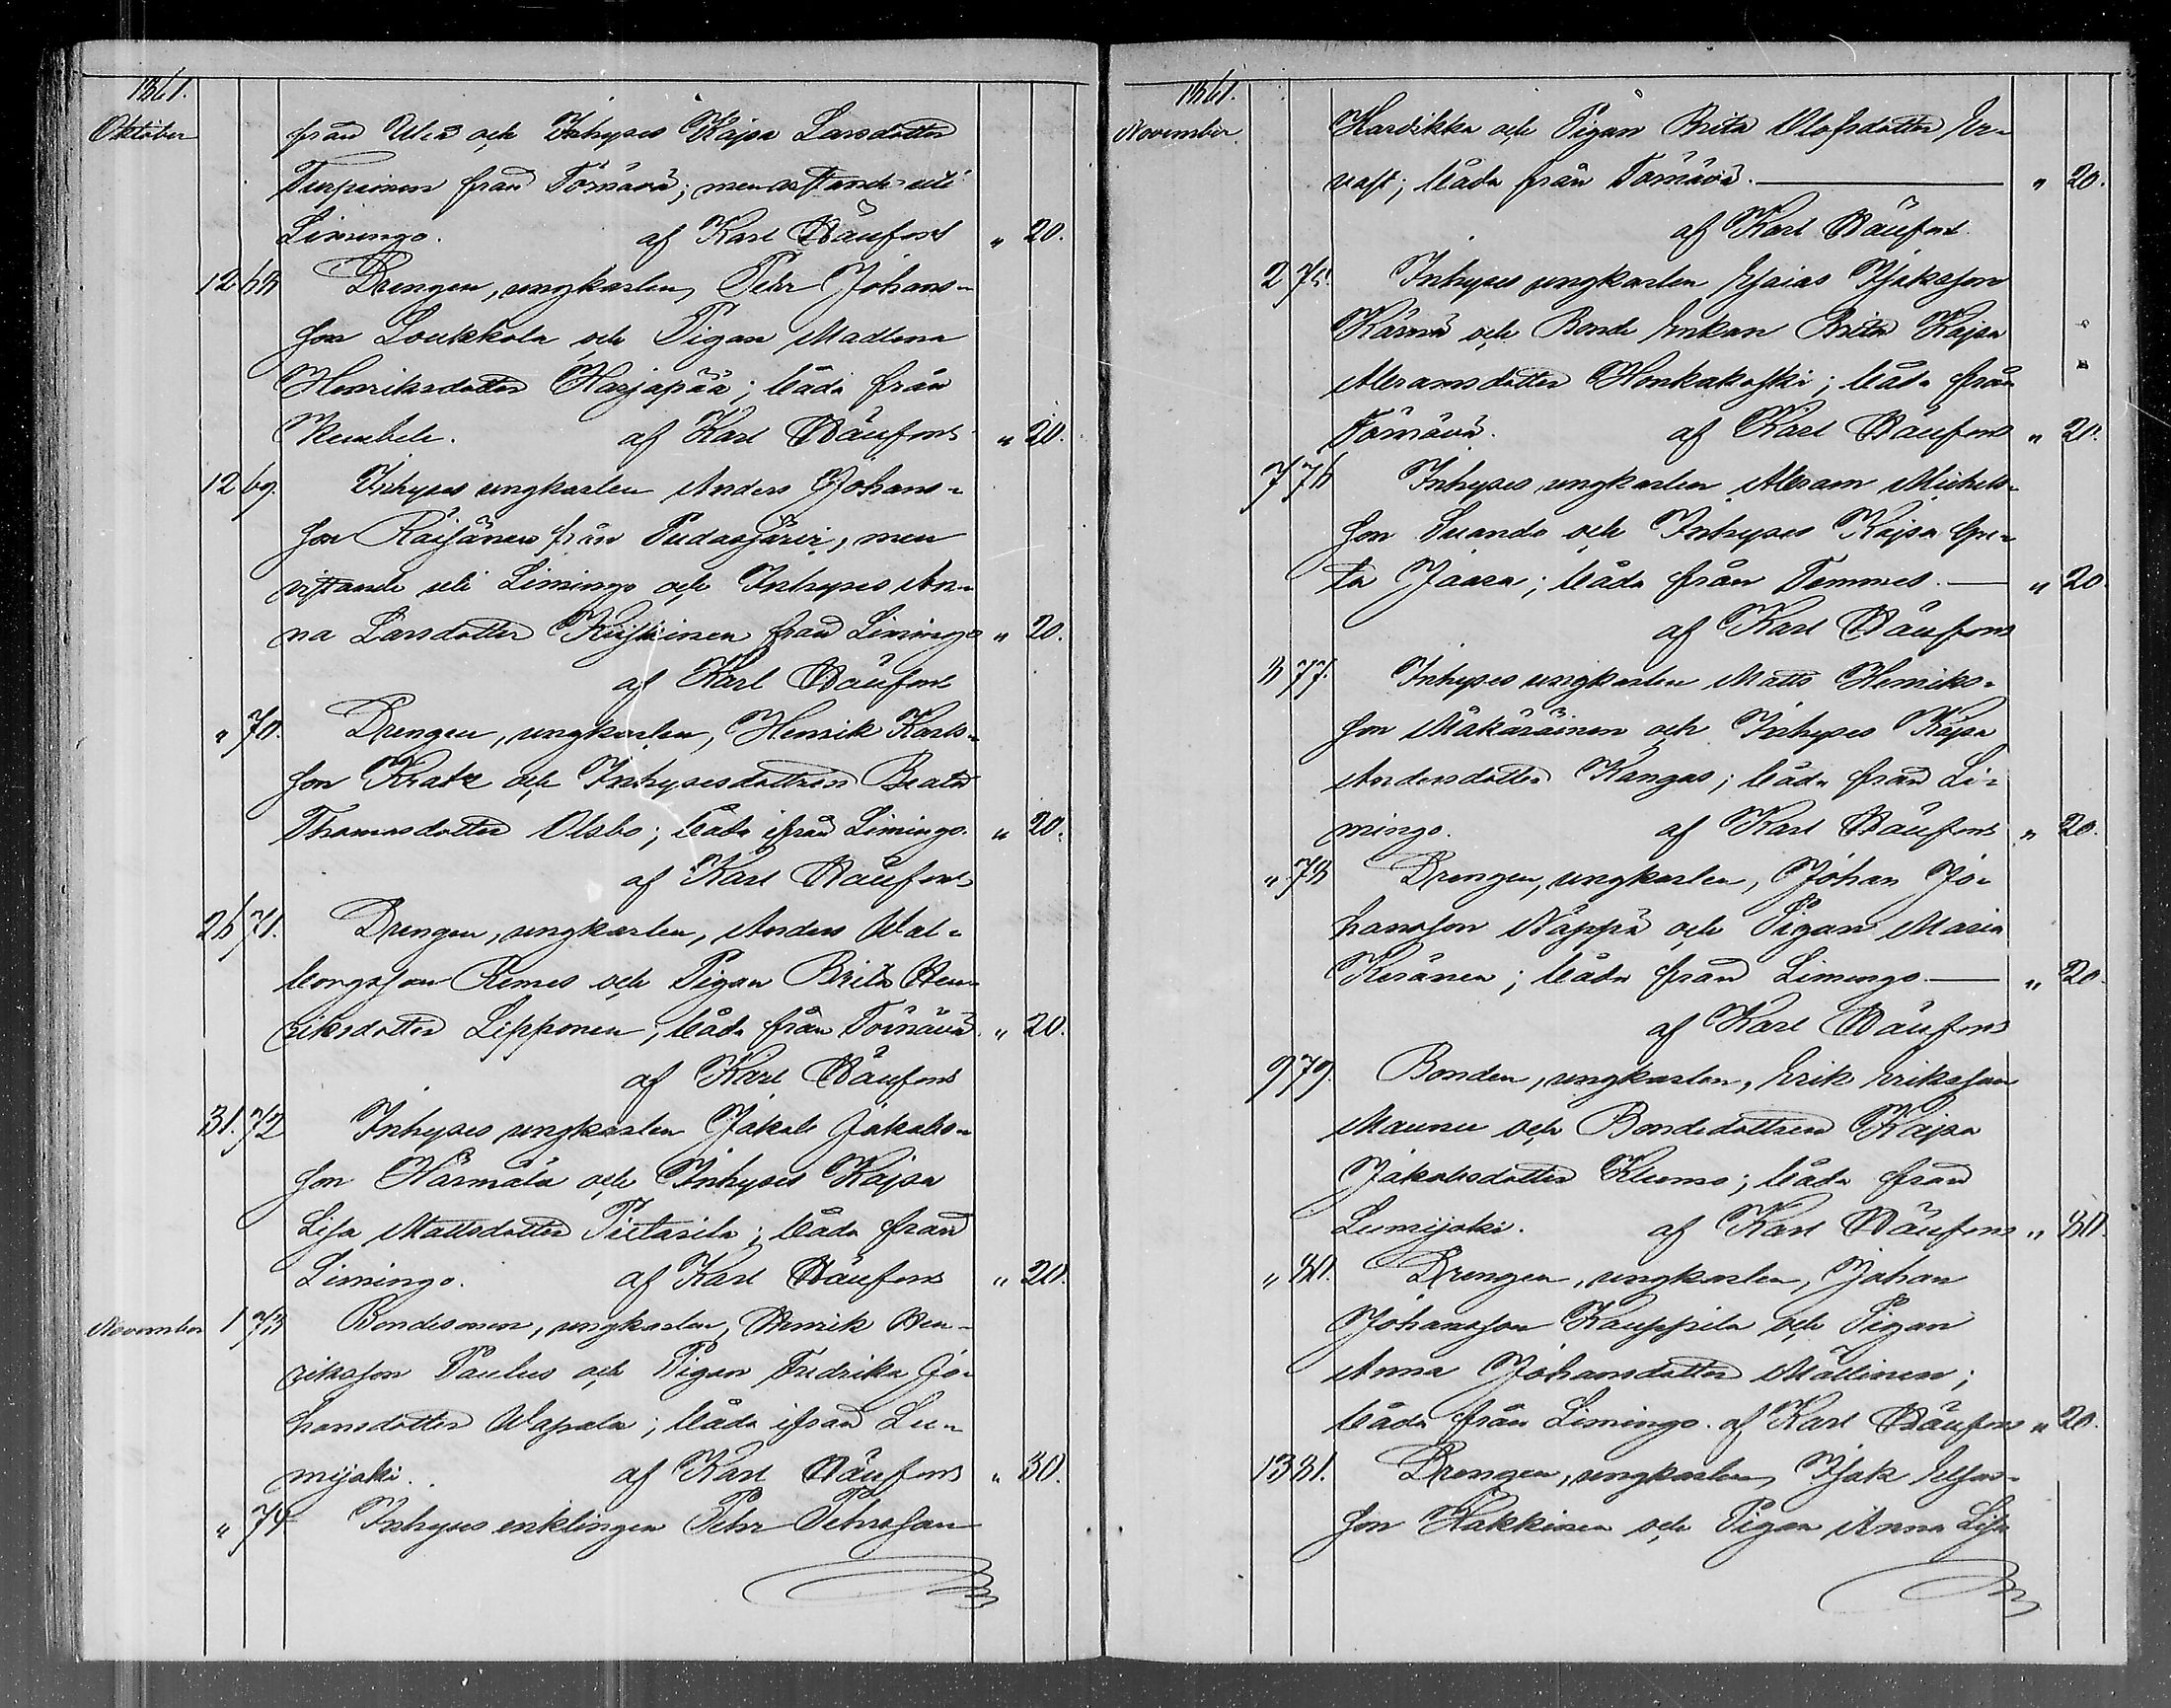 1861.
Oktober från Uleå och Inhyses Kajsa Larsdotter
Turpeinen från Törnävä; men vistande uti
Limingo. af Karl Häufons „ 20.
12 68 Drengen, ungkarlen, Pehr Johans-
son Loukkola och Pigan Madlena
Henriksdotter Harjapää; båda från
Kembele. af Karl Häufons „ 20.
12 69. Inhyses ungkarlen Anders Johans-
son Räisänen från Pudasjärvi, men
vistande uti Limingo och Inhyses An-
na Larsdotter från Limingo „ 20.
af Karl Häufons
„ 70. Drengen, ungkarlen, Henrik Karls-
son Kratz och Inhysesdottren Beata
Thomasdotter Olsbo; båda ifrån Limingo. „ 20.
af Karl Häufons
26 71. Drengen, ungkarlen, Anders Wal-
borgsson Remes och Pigan Brita Hen-
riksdotter Lipponen; båda från Törnävä. „ 20.
af Karl Häufons
31. 72 Inhyses ungkarlen Jakob Jakobs-
son Härmälä och Inhyses Kajsa
Lisa Mattsdotter Pietarila; båda från
Limingo. af Karl Häufons „ 20.
November 1 73 Bondesonen, ungkarlen, Henrik Hen-
riksson Paulus och Pigan Fredrika Jo-
hansdotter Wapala; båda ifrån Lu-
mijoki. af Karl Häufons „ 30.
„ 74 Inhyses enklingen Pehr Pehrsson
1861.
November Karvikka och Pigan Brita Olofsdotter Er-
vast; båda från Törnävä. „ 20.
af Karl Häufons
2 75. Inhyses ungkarlen Esaias Isaksson
Kärnä och Bonde Enkan Brita Kajsa
Abramsdotter Honkakoski; båda från
Törnävä. af Karl Häufons „ 20.
7 76 Inhyses ungkarlen Abram Michels-
son Suando och Inhyses Kajsa Gre-
ta Jaara; båda från Temmes. „ 20.
af Karl Häufons
8 77. Inhyses ungkarlen Matts Henriks-
son Mäkäräinen och Inhyses Kajsa
Andersdotter Kangas; båda från Li-
mingo. af Karl Häufons „ 20.
„ 78 Drengen, ungkarlen, Johan Jo-
hansson Näppä och Pigan Maria
Keränen; båda från Limingo. „ 20.
af Karl Häufons
9 79. Bonden, ungkarlen, Erik Eriksson
Maunu och Bondedottren Kajsa
Jakobsdotter Klemo; båda från
Lumijoki. af Karl Häufons „ 80.
„ 80. Drengen, ungkarlen, Johan
Johansson Kauppila och Pigan
Anna Johansdotter Mällinen;
båda från Limingo. af Karl Häufons „ 20.
13 81. Drengen, ungkarlen, Isak Esais-
son Hakkinen och Pigan Anna Lisa